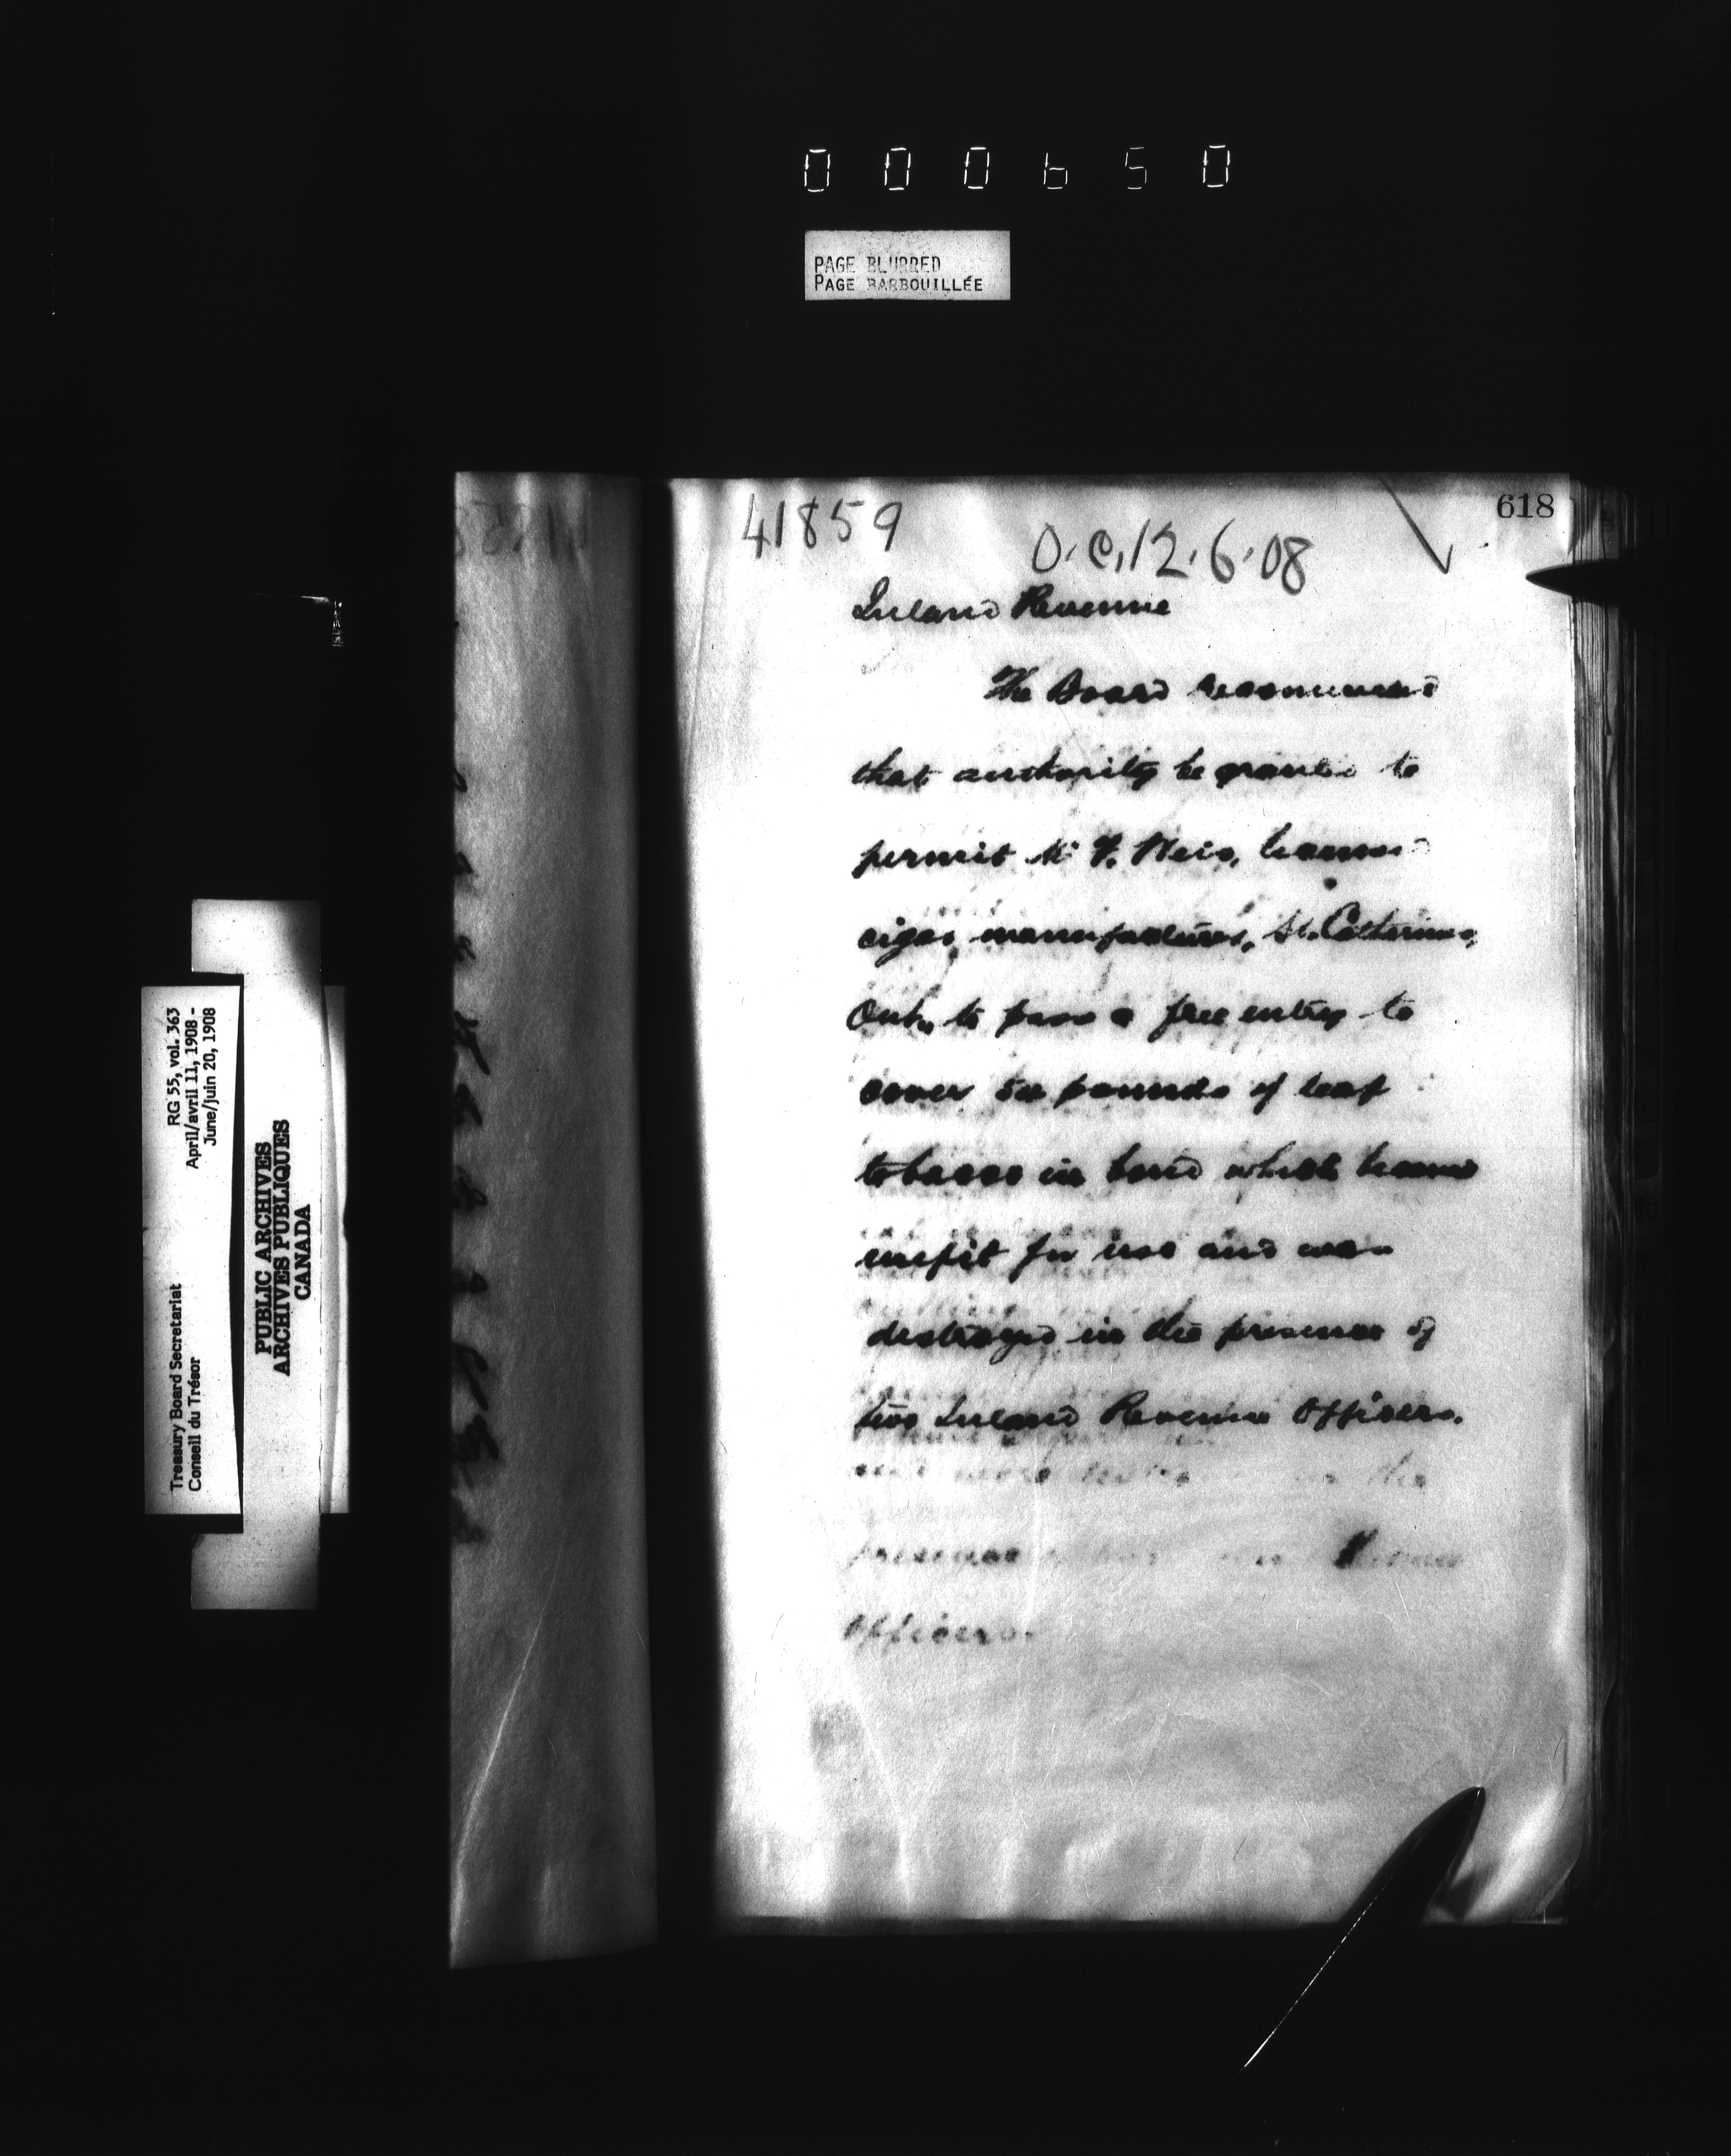 000650
PAGE BLURRED
PAGE BARBOUILLÉE
618
41859
O.C. 12.6.08
Inland Revenue
The Board recommend
that authority be granted to
permit Mr F. Weis, licensed
cigar manufacturer, St. Catharines,
Ont., to pass a free entry to
cover 50 pounds of leaf
tobacco in bond which became
unfit for use and was
destroyed in the presence of
two Inland Revenue Officers.
the
presence
Officers.
RG 55, vol. 363
April/avril 11, 1908 -
June/juin 20, 1908
Treasury Board Secretariat
Conseil du Trésor
PUBLIC ARCHIVES
ARCHIVES PUBLIQUES
CANADA